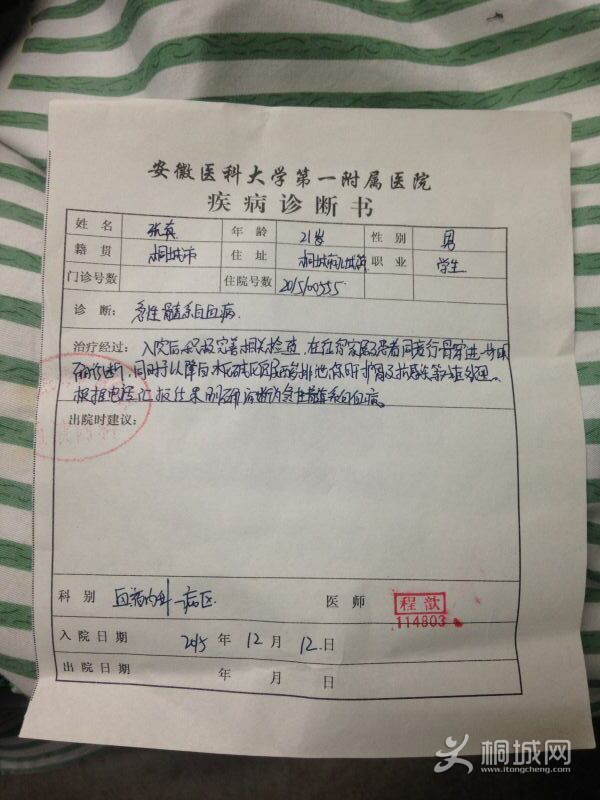 安徽医科大学第一附属医院
疾病诊断书
姓名 张 年龄 21岁 性别 男
籍贯 桐城市 住址 桐城市 职业 学生
门诊号数 住院号数
诊断: 急性髓系白血病.
治疗经过: 入院后积极完善相关检查,在征家属及患者同意行骨穿进一步明
确诊断,同时予以降白
根据 汇报结果明确诊断为急性髓系白血病
出院时建议:
科别 血液内科一病区 医师 程歆
114803
入院日期 2015 年 12 月 12 日
出院日期 年 月 日
桐城网
www.itongcheng.com